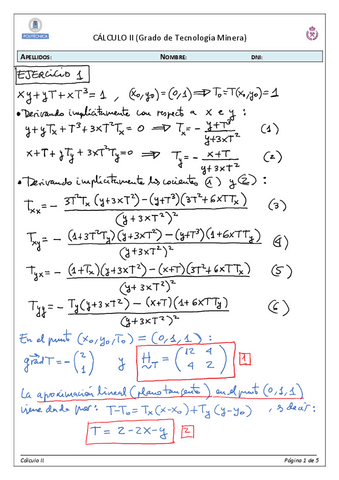 POLITÉCNICA
CÁLCULO II (Grado de Tecnología Minera)
APELLIDOS: NOMBRE: DNI:
EJERCICIO 1
xy + yT + xT³ = 1 , (x₀,y₀) = (0,1) ⟹ T₀ = T(x₀,y₀) = 1
• Derivando implícitamente con respecto a x e y :
y + yTₓ + T³ + 3xT²Tₓ = 0 ⟹ Tₓ = - (y+T³)/(y+3xT²) (1)
x + T + yT_y + 3xT²T_y = 0 ⟹ T_y = - (x+T)/(y+3xT²) (2)
• Derivando implícitamente los cocientes (1) y (2) :
Tₓₓ = - (3T²Tₓ(y+3xT²) - (y+T³)(3T²+6xTTₓ))/(y+3xT²)² (3)
T_xy = - ((1+3T²T_y)(y+3xT²) - (y+T³)(1+6xTT_y))/(y+3xT²)² (4)
T_yx = - ((1+Tₓ)(y+3xT²) - (x+T)(3T²+6xTTₓ))/(y+3xT²)² (5)
T_yy = - (T_y(y+3xT²) - (x+T)(1+6xTT_y))/(y+3xT²)² (6)
En el punto (x₀,y₀,T₀) = (0,1,1) :
grad T = - (2 1) y H T = (12 4 4 2) 1
La aproximación lineal (plano tangente) en el punto (0,1,1)
viene dada por: T-T₀ = Tₓ(x-x₀) + T_y(y-y₀) , es decir:
T = 2-2x-y 2
Cálculo II Página 1 de 5